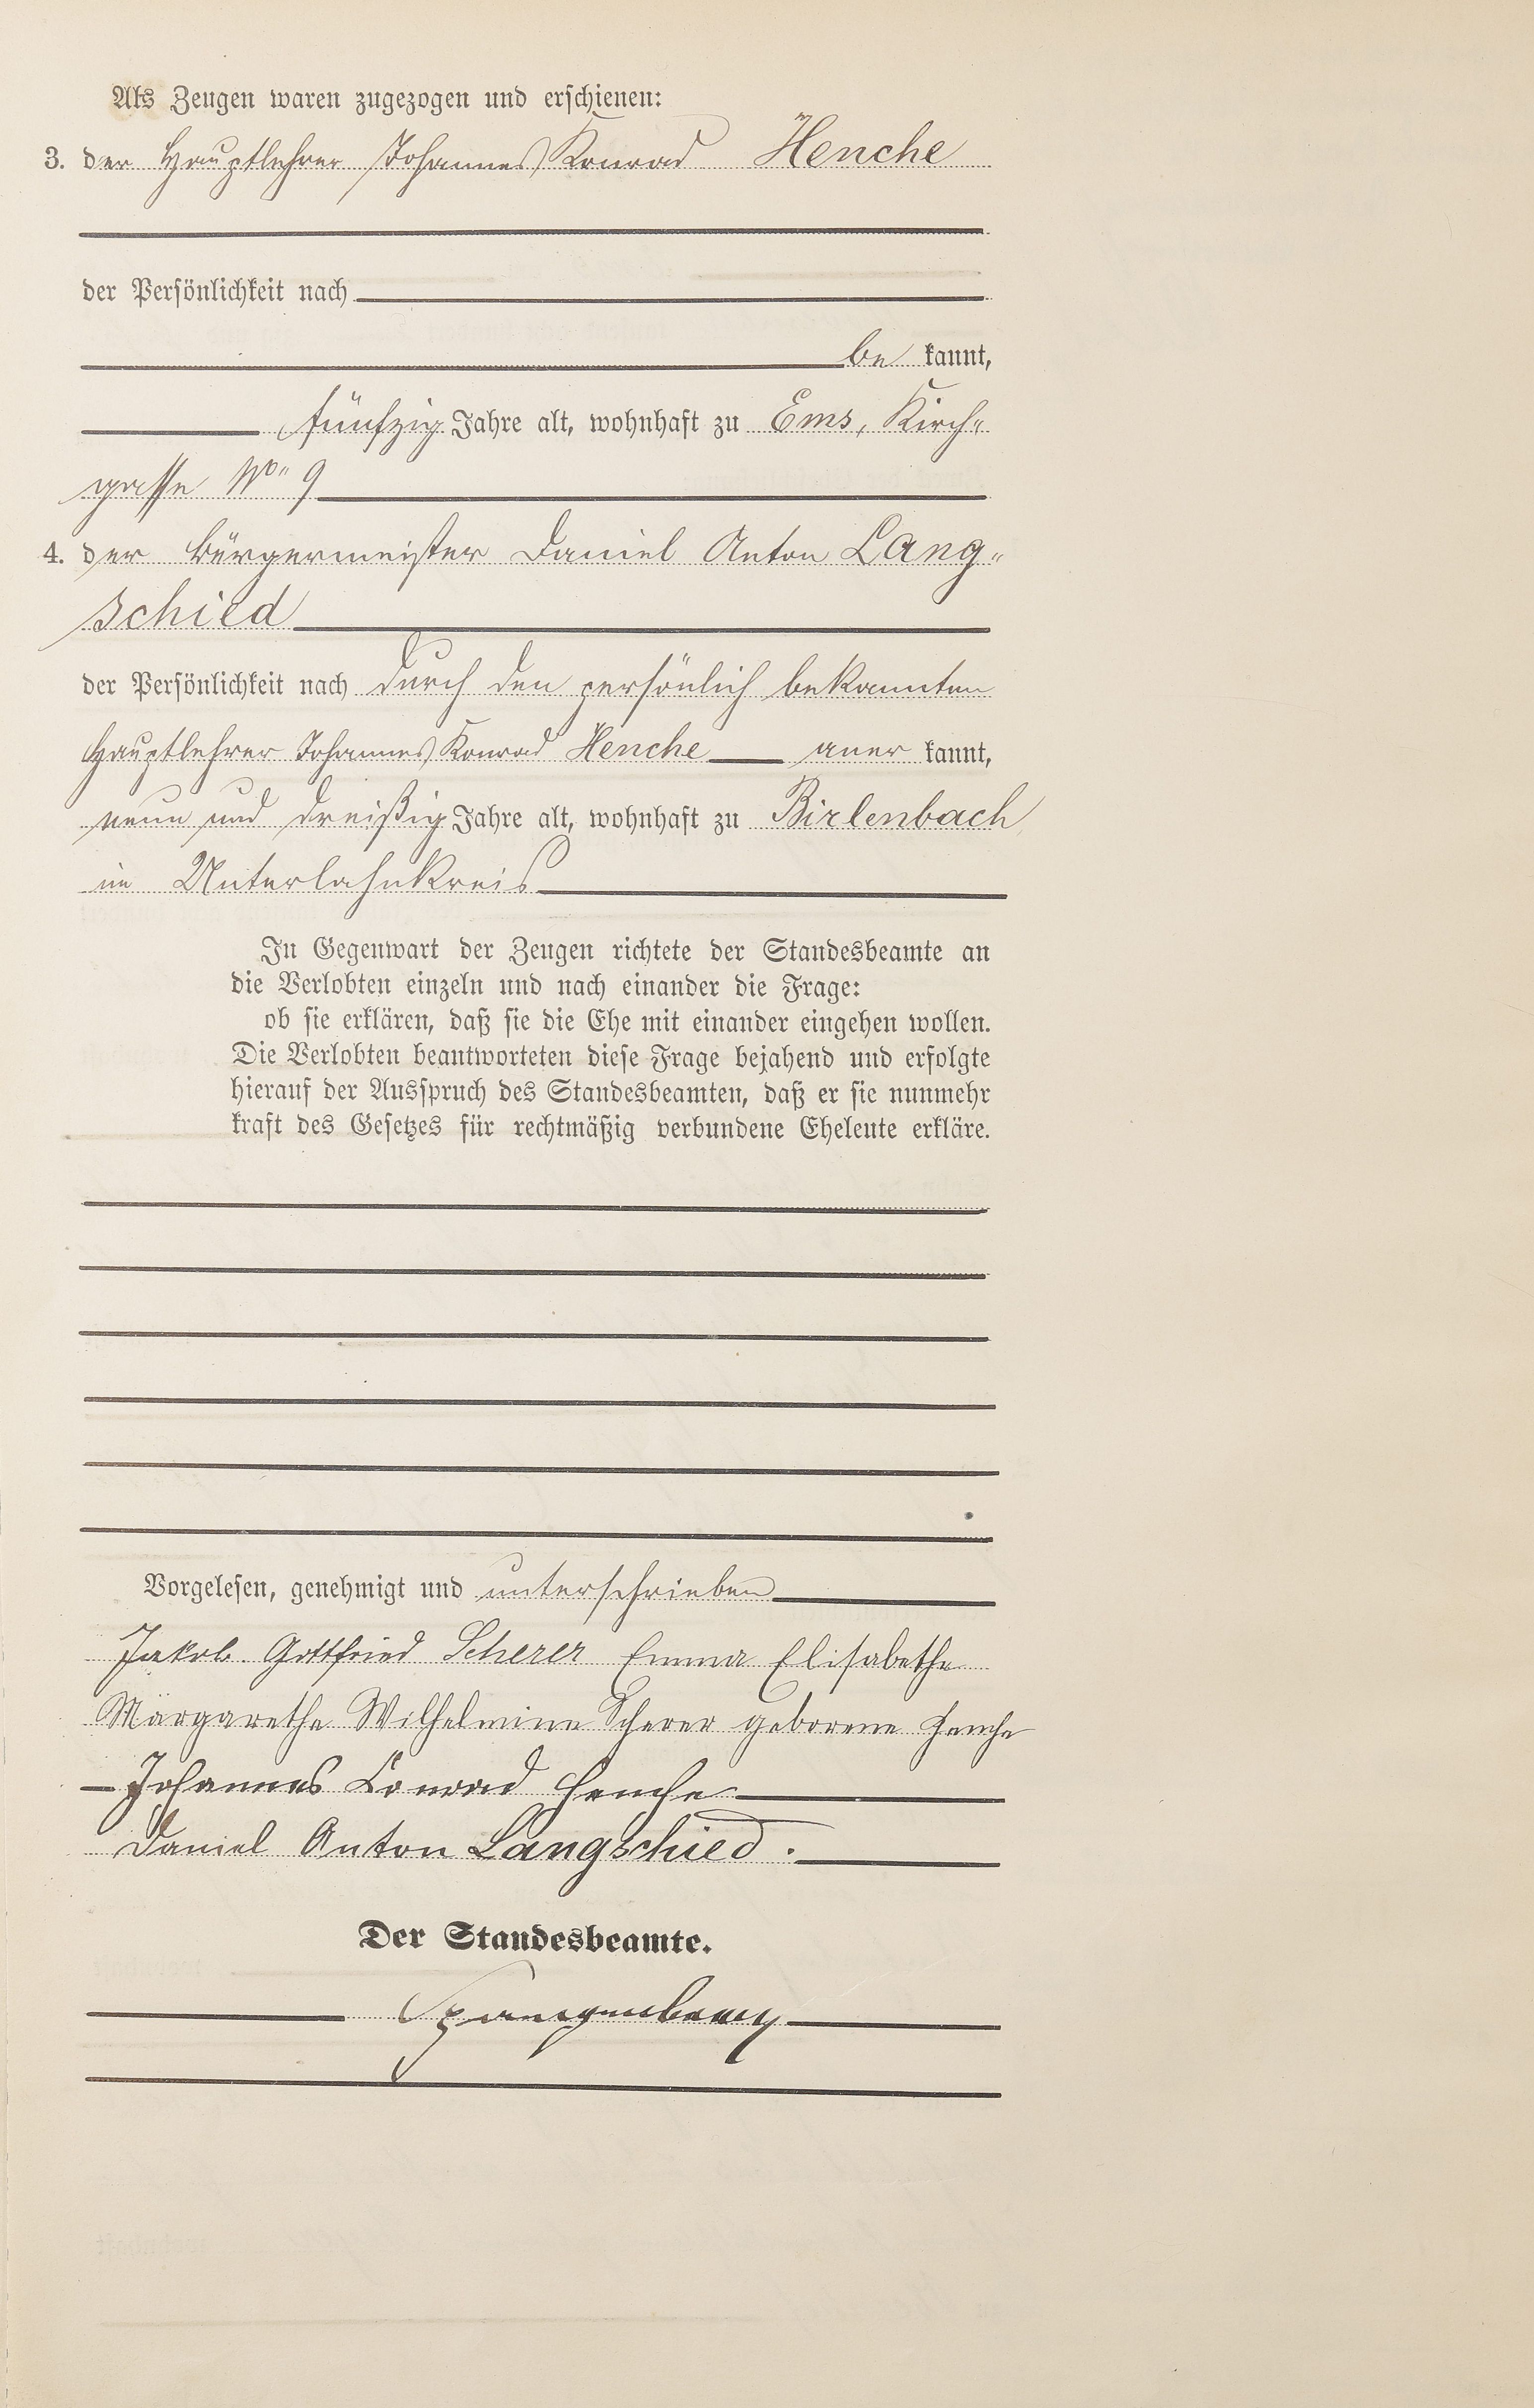 Als Zeugen waren zugezogen und erschienen:
3. der Hauptlehrer Johannes Konrad Henche
der Persönlichkeit nach
be kannt,
fünfzig Jahre alt, wohnhaft zu Ems, Kirch-
gasse No 9
4. der Bürgermeister Daniel Anton Lang-
schied
der Persönlichkeit nach durch den persönlich bekannten
Hauptlehrer Johannes Konrad Henche aner kannt,
neun und dreißig Jahre alt, wohnhaft zu Birlenbach
im Unterlahnkreis
In Gegenwart der Zeugen richtete der Standesbeamte an
die Verlobten einzeln und nach einander die Frage:
ob sie erklären, daß sie die Ehe mit einander eingehen wollen.
Die Verlobten beantworteten diese Frage bejahend und erfolgte
hierauf der Ausspruch des Standesbeamten, daß er sie nunmehr
kraft des Gesetzes für rechtmäßig verbundene Eheleute erkläre.
Vorgelesen, genehmigt und unterschrieben
Jakob Gottfried Scherer Emma Elisabethe
Margarethe Wilhelmine Scherer geborene Henche
Johannes Conrad Henche
Daniel Anton Langschied.
Der Standesbeamte.
Spangenberg